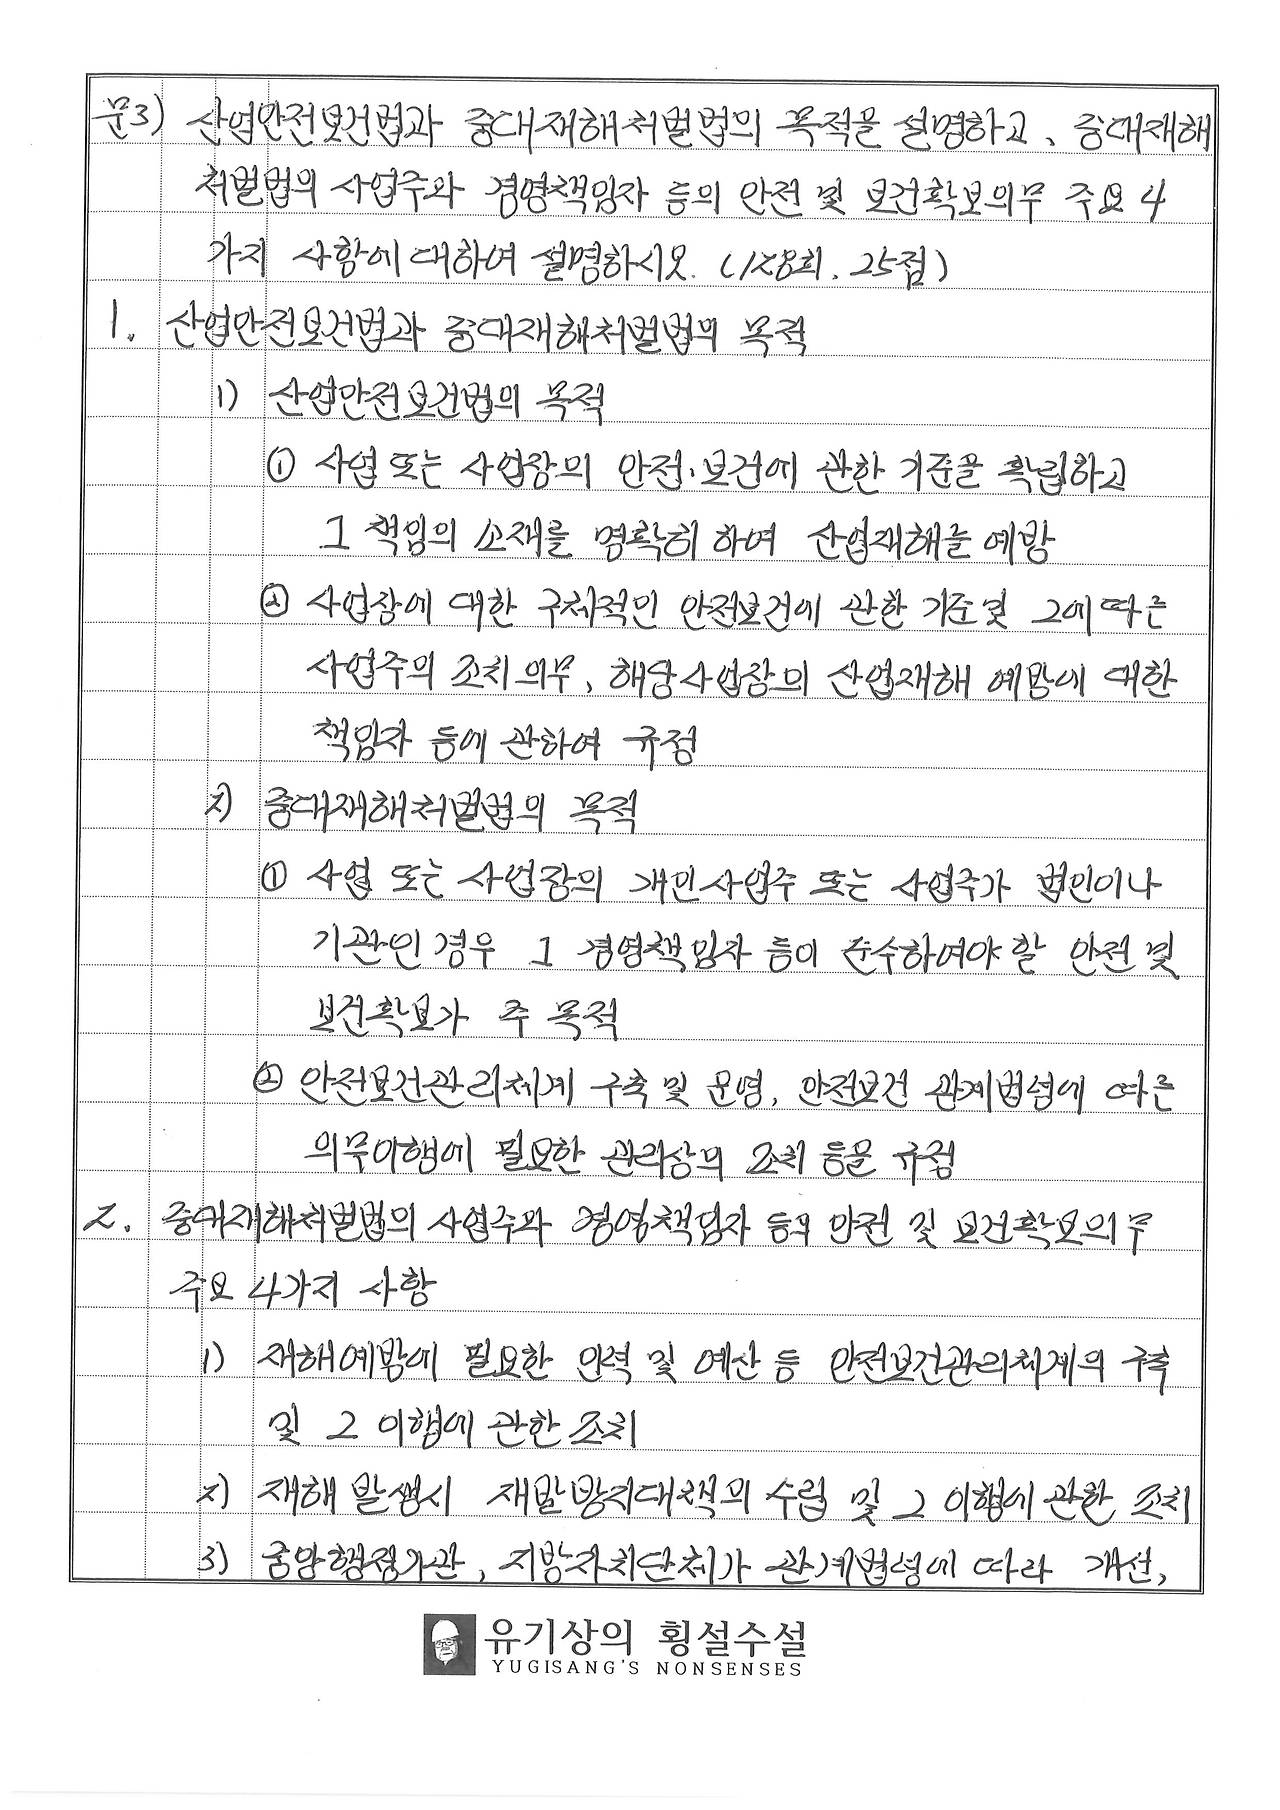 문3) 산업안전보건법과 중대재해처벌법의 목적을 설명하고, 중대재해
처벌법의 사업주와 경영책임자 등의 안전 및 보건확보의무 주요 4
가지 사항에 대하여 설명하시오. (128회. 25점)
1. 산업안전보건법과 중대재해처벌법의 목적
1) 산업안전보건법의 목적
① 사업 또는 사업장의 안전·보건에 관한 기준을 확립하고
그 책임의 소재를 명확히 하여 산업재해를 예방
② 사업장에 대한 구체적인 안전보건에 관한 기준 및 그에 따른
사업주의 조치의무, 해당사업장의 산업재해 예방에 대한
책임자 등에 관하여 규정
2) 중대재해처벌법의 목적
① 사업 또는 사업장의 개인사업주 또는 사업주가 법인이나
기관인 경우 그 경영책임자 등이 준수하여야 할 안전 및
보건확보가 주 목적
② 안전보건관리체계 구축 및 운영, 안전보건 관계법령에 따른
의무이행에 필요한 관리상의 조치 등을 규정
2. 중대재해처벌법의 사업주와 경영책임자 등의 안전 및 보건확보의무
주요 4가지 사항
1) 재해예방에 필요한 인력 및 예산 등 안전보건관리체계의 구축
및 그 이행에 관한 조치
2) 재해 발생시 재발방지대책의 수립 및 그 이행에 관한 조치
3) 중앙행정기관, 지방자치단체가 관계법령에 따라 개선,
유기상의 횡설수설
YUGISANG'S NONSENSES